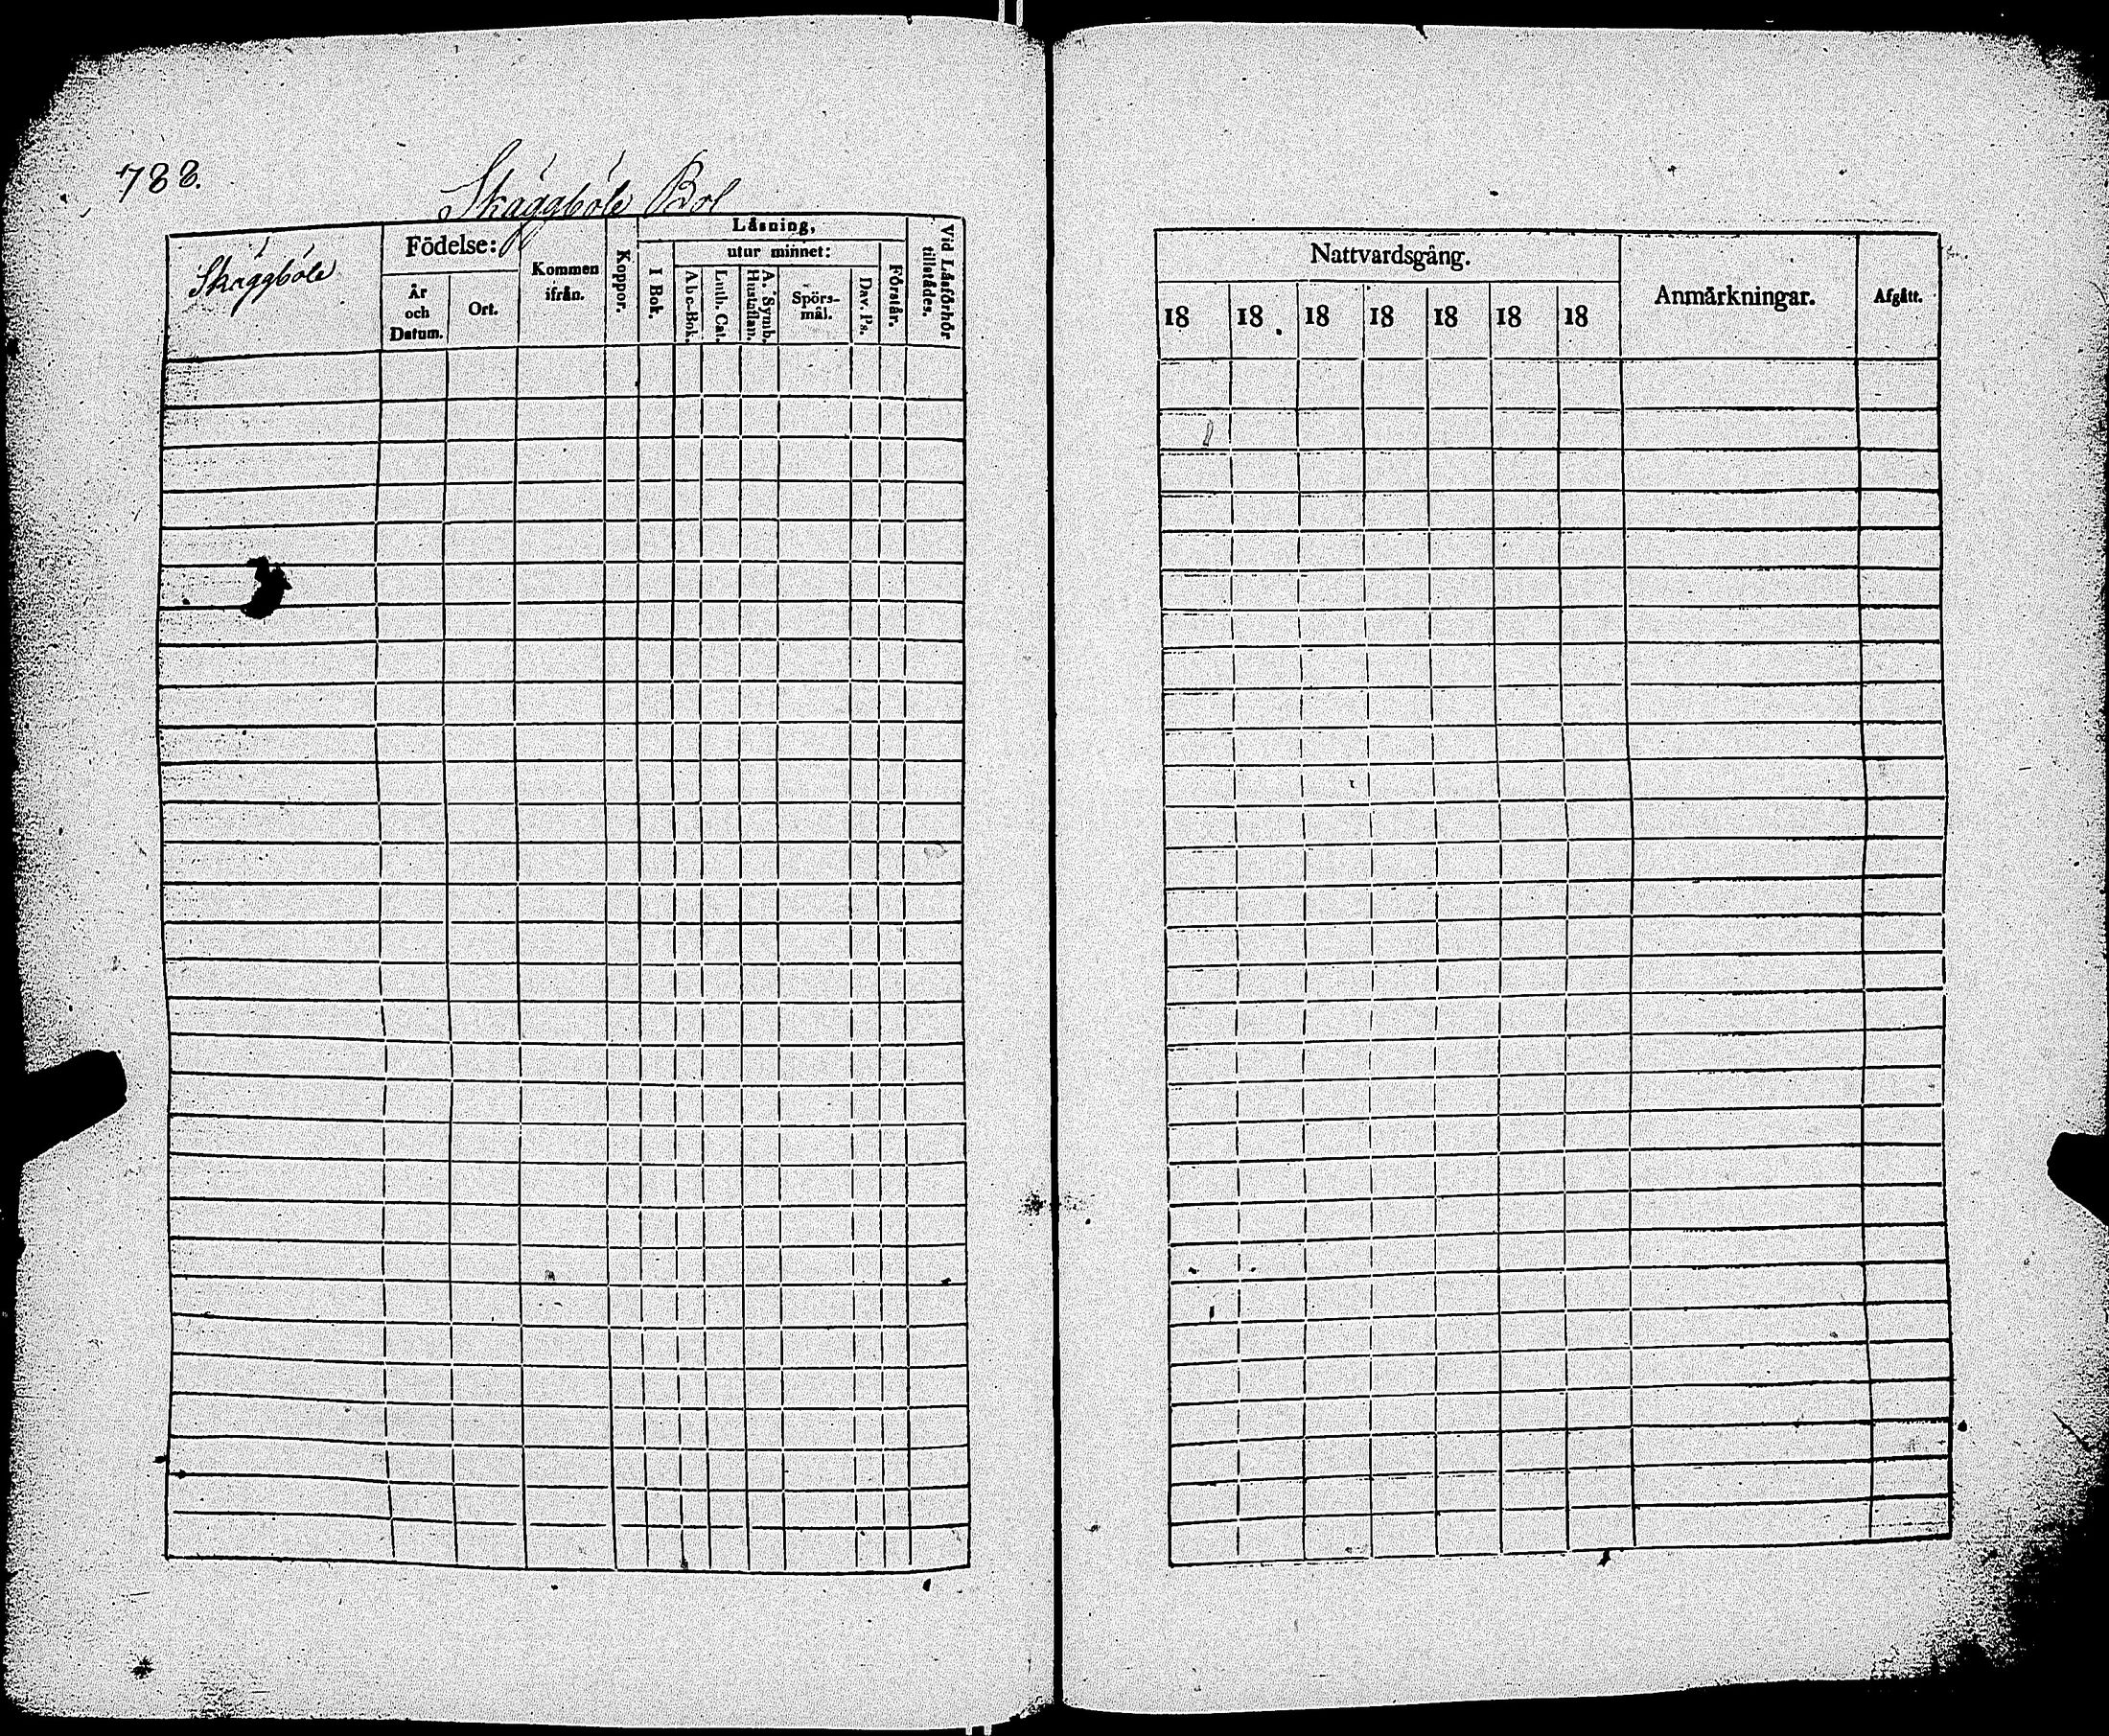 788.
Skäggböle Bol
Skäggböle
Födelse:
År
och
Datum.
Ort.
Kommen
ifrån.
Koppor.
Läsning,
I Bok.
utur minnet:
A b c-Bok.
Luth. Cat.
Hustaflan.
A. Symb.
Spörs-
mål.
Dav. Ps.
Förstår.
Vid Läsförhör
tillstädes.
Nattvardsgång.
18 18 18 18 18 18 18
Anmärkningar.
Afgått.